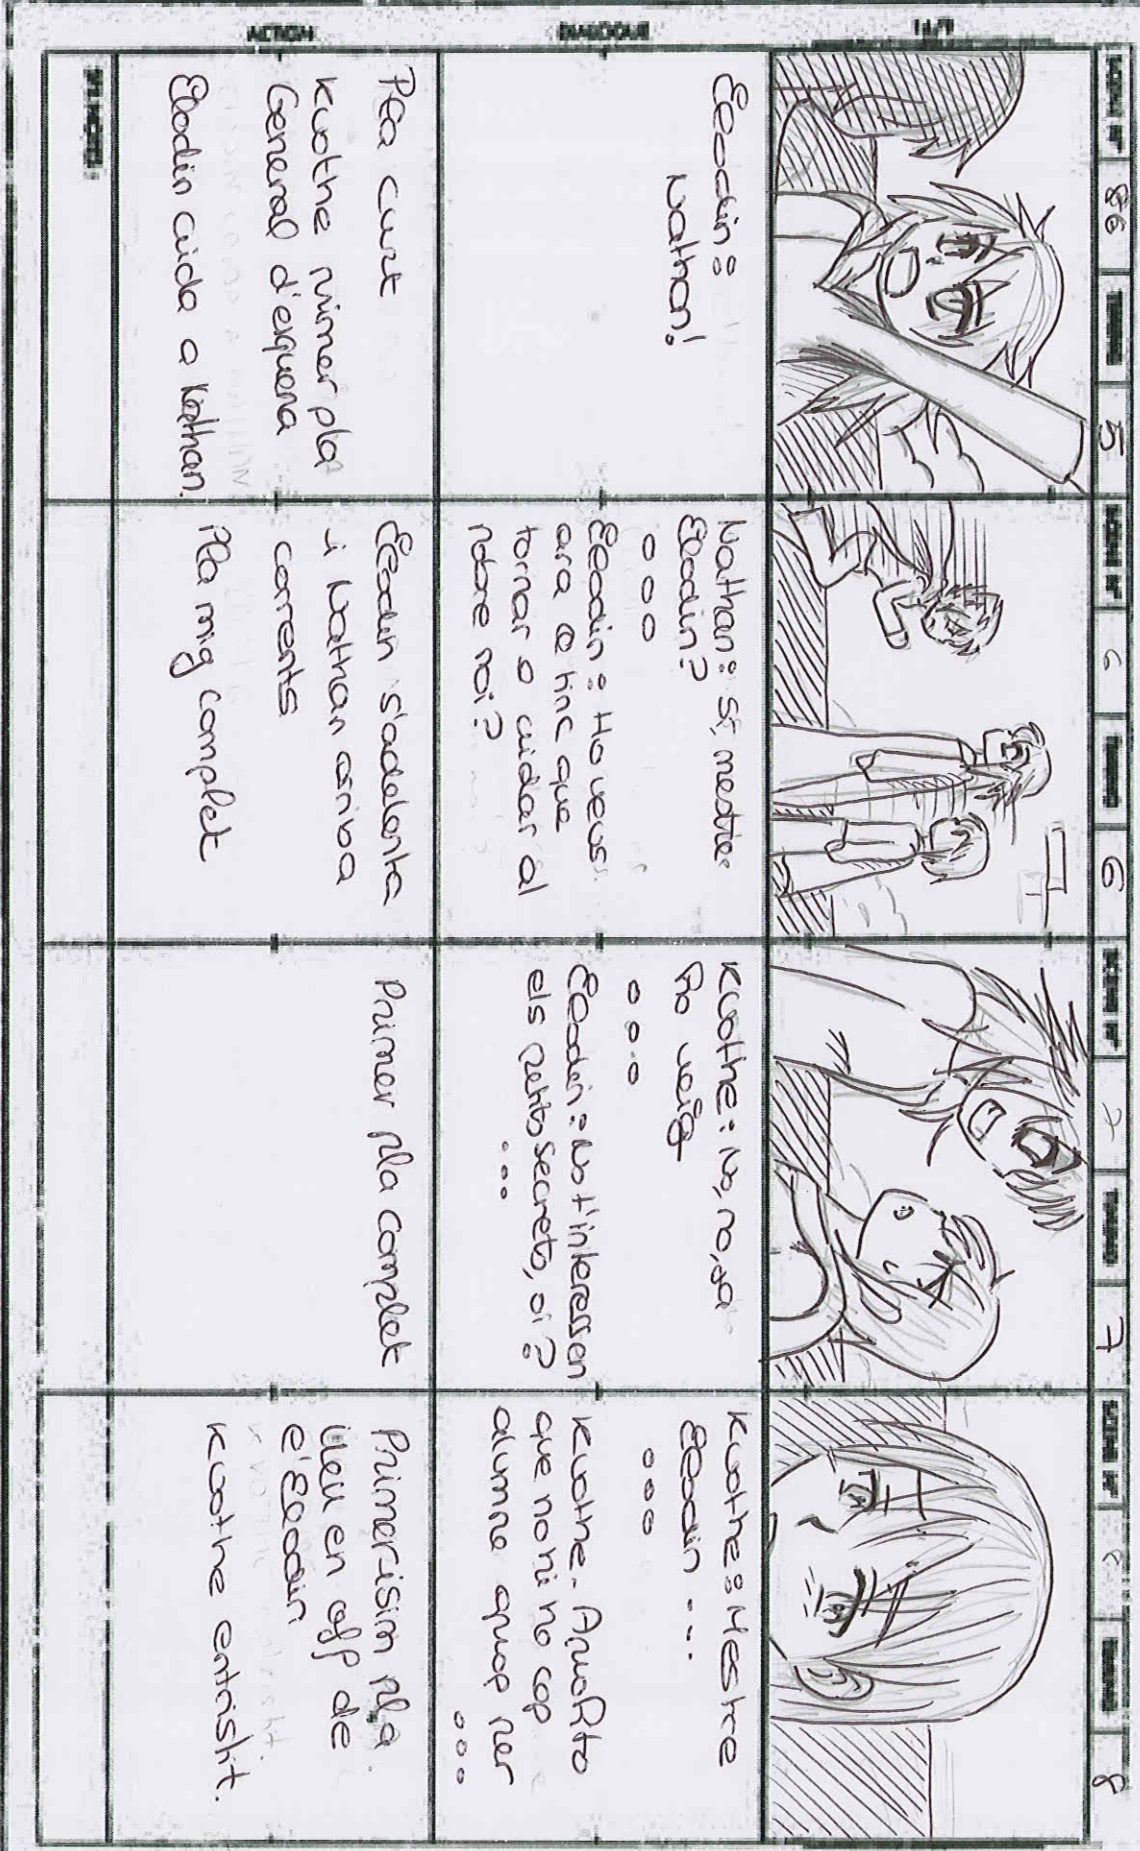 86
5
6
6
7
8
8
DIALOGUE
ACTION
Elodin:
Nathan!
Nathan: Sí, mestre
Elodin?
...
Elodin: Ho veus
ara e tinc que
tornar a cuidar al
pobre noi?
Kvothe: No, no, ja
ho veig
...
Elodin: No t'interessen
els petits secrets, oi?
...
Kvothe: Mestre
Elodin ...
...
Kvothe - Apuesto
que no hi ha cap
alumne apuop per
...
Pla curt
Kvothe primer pla
General d'esquena
Elodin cuida a Nathan.
Elodin s'adelanta
i Nathan arriba
corrents
Pla mig complet
Primer pla complet
Primerisim pla
Veu en off de
l'Elodin
Kvothe entristit.